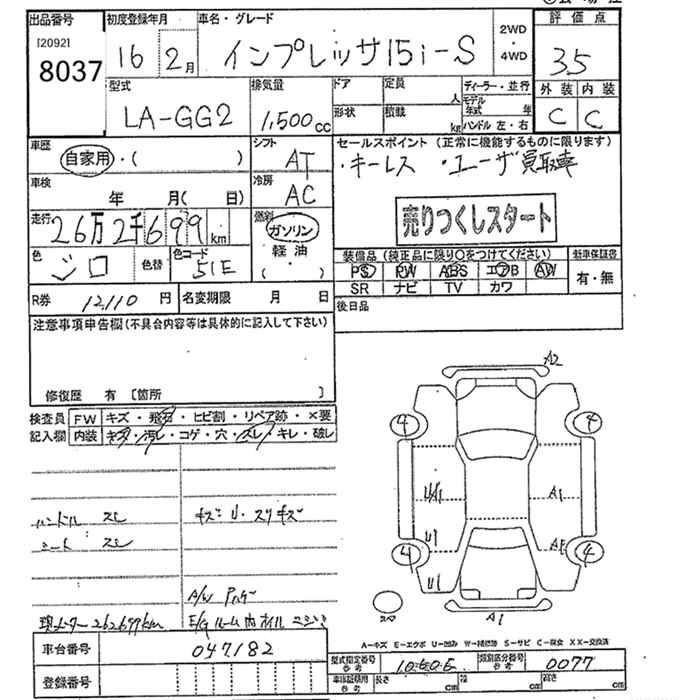 出品番号 初度登録年月 車名・グレード 2WD・4WD 評価点
[2092]
8037 16 2月 インプレッサ15i-S 3.5
型式 排気量 ドア 定員 人 ディーラー・並行 外装 内装
LA-GG2 1,500cc 形状 積載 kg モデル年式 年 ハンドル 左・右 C C
車歴 シフト セールスポイント (正常に機能するものに限ります)
自家用・( ) AT ・キーレス ・ユーザ買取車
車検 冷房
年 月( 日) AC
売りつくしスタート
走行 燃料
26万2千699km ガソリン
軽油
・( )
色 色替 色コード 装備品(純正品に限り○をつけてください) 新車保証書
シロ 51E PS PW ABS エアB AW 有・無
SR ナビ TV カワ
R券 12,110円 名変期限 月 日 後日品
注意事項申告欄(不具合内容等は具体的に記入して下さい)
修復歴 有 〔箇所 〕
検査員 FW キズ・飛石・ヒビ割・リペア跡・×要
記入欄 内装 キズ・汚レ・コゲ・穴・スレ・キレ・破レ
A2
4 4
U/A1 A1
U1
4 4
U1
A1
ハンドル スレ キズ・U・スリキズ
シート スレ
A/W
現メーター262699km E/Gルーム内オイルニジミ
車台番号 047182
登録番号
A-キズ E-エクボ U-凹み W-補修跡 S-サビ C-腐食 XX-交換済
型式指定番号 類別区分番号 0077
参考 参考
車検証積用 長さ cm 幅 cm 高さ cm
参考